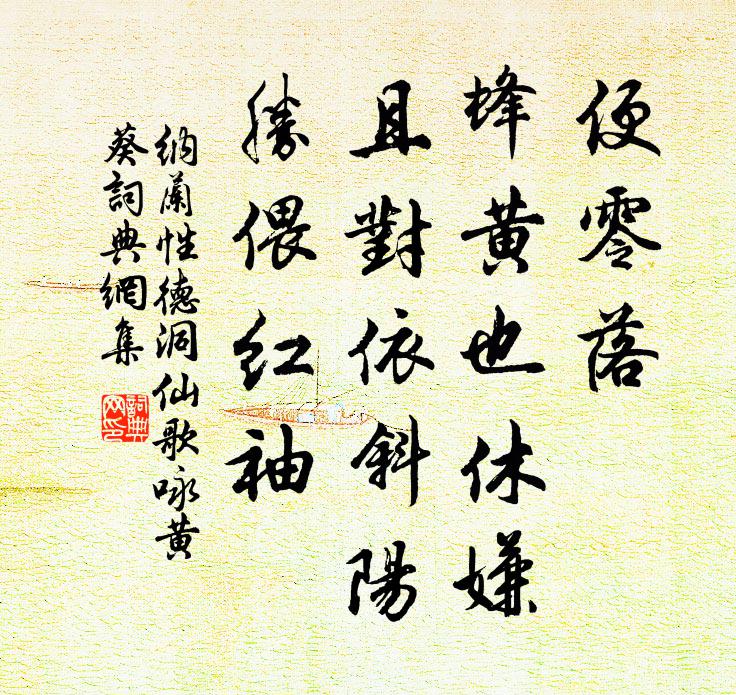 便零落
蜂黄也休嫌
且對依斜陽
勝偎红袖
納蘭性德洞仙歌咏黄
葵詞典網集
詞典
网印